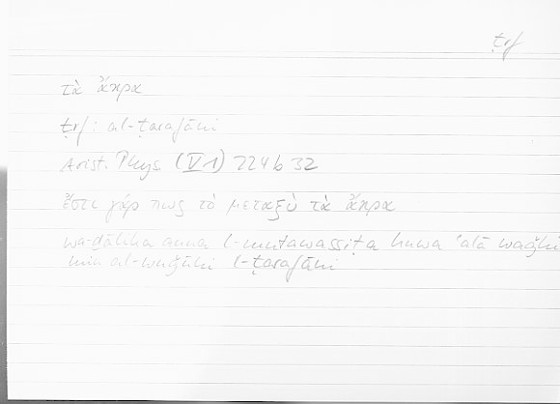 ṭrf
τὰ ἄκρα
ṭrf: al-ṭarafāni
Arist. Phys. (V 1) 224 b 32
ἔστι γάρ πως τὸ μεταξὺ τὰ ἄκρα
wa-ḏālika anna l-mutawassiṭa huwa ʿalā waǧhi
min al-wuǧūhi l-ṭarafāni